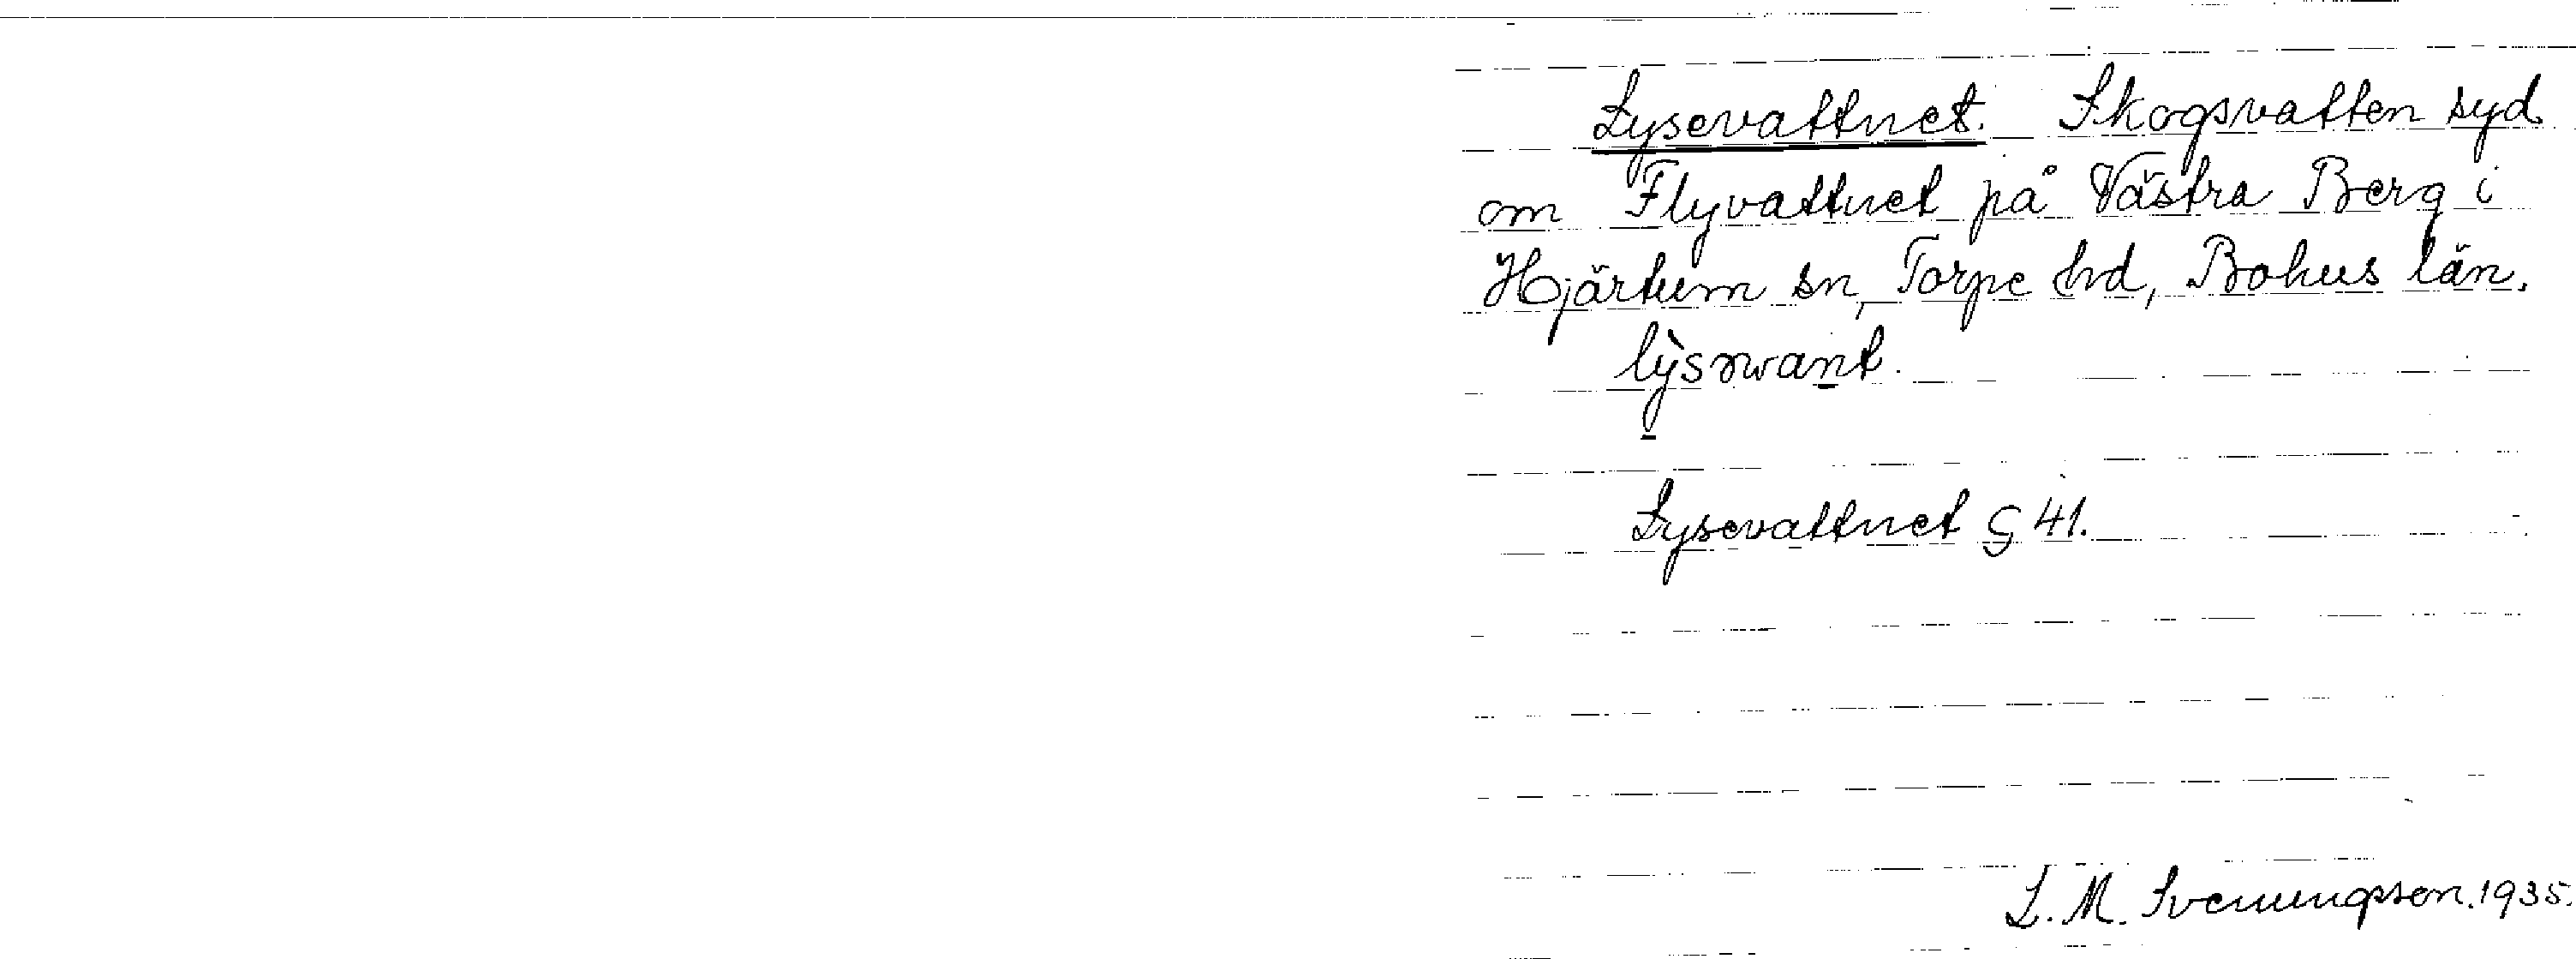 Lysevattnet. Skogsvatten syd
om Flyvattnet på Västra Berg i
Hjärtum sn, Torpe hd, Bohus län.
Lysevattnet G 41.
L. M. Svenungsson. 1935.